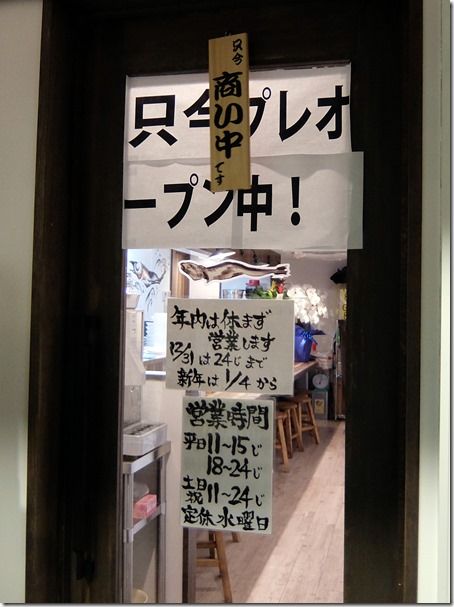 只今
商い中
です
只今プレオ
ープン中！
年内は休まず
営業します
12/31は24じまで
新年は1/4から
営業時間
平日11〜15じ
18〜24じ
土日祝11〜24じ
定休水曜日